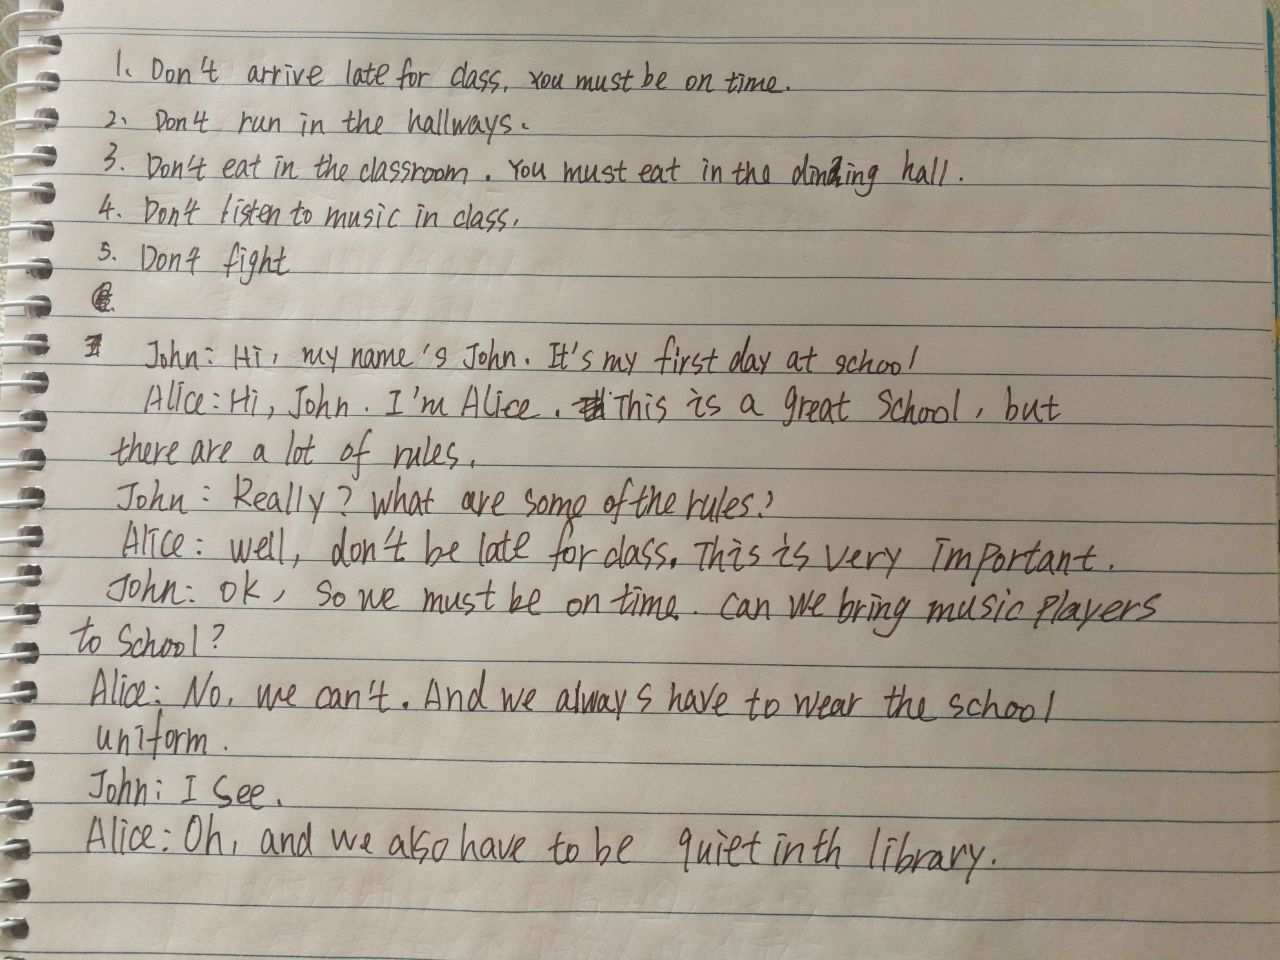 1. Don't arrive late for class. You must be on time.
2. Don't run in the hallways.
3. Don't eat in the classroom. You must eat in the dining hall.
4. Don't listen to music in class.
5. Don't fight
John: Hi, my name's John. It's my first day at school
Alice: Hi, John. I'm Alice. This is a great School, but
there are a lot of rules.
John: Really? What are some of the rules?
Alice: well, don't be late for class. This is very important.
John: Ok, so we must be on time. Can we bring music players
to School?
Alice: No, we can't. And we always have to wear the school
uniform.
John: I See.
Alice: Oh, and we also have to be quiet in th library.